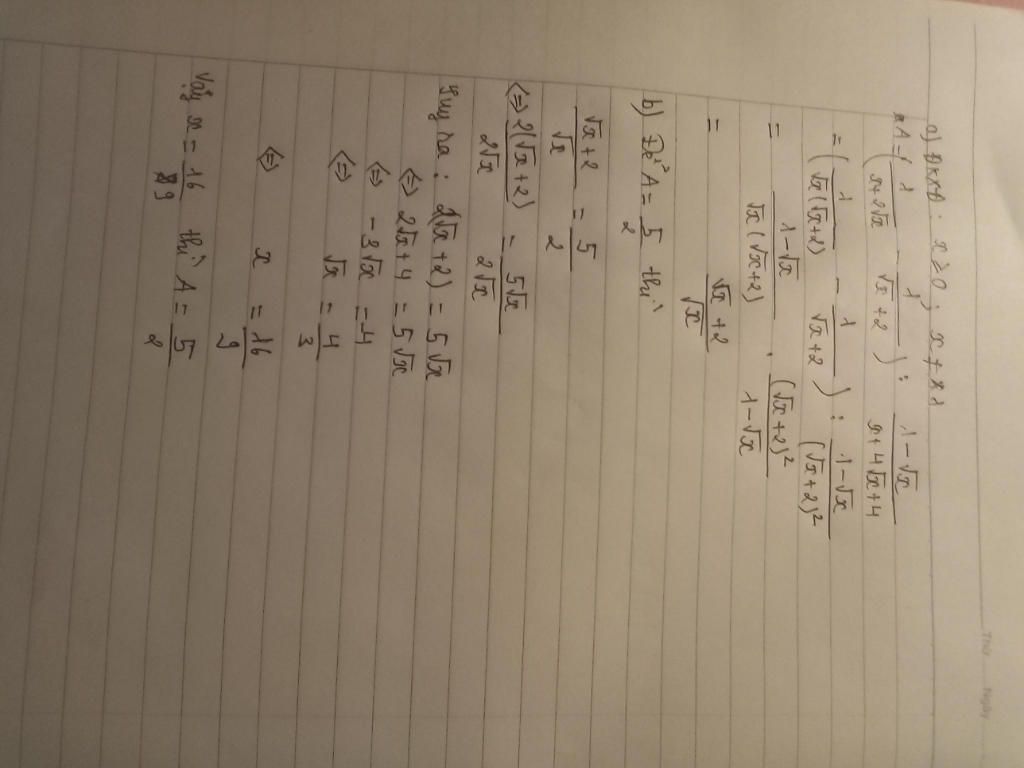 Thứ Ngày
a) ĐKXĐ: x ≥ 0 ; x ≠ 1
A = ( 1/(x+2√x) - 1/(√x+2) ) : (1-√x)/(x+4√x+4)
= ( 1/(√x(√x+2)) - 1/(√x+2) ) : (1-√x)/(√x+2)²
= (1-√x)/(√x(√x+2)) . (√x+2)²/(1-√x)
= (√x+2)/√x
b) Để A = 5/2 thì
(√x+2)/√x = 5/2
<=> 2(√x+2)/(2√x) = 5√x/(2√x)
Suy ra : 2(√x+2) = 5√x
<=> 2√x+4 = 5√x
<=> -3√x = -4
<=> √x = 4/3
<=> x = 16/9
Vậy x = 16/9 thì A = 5/2